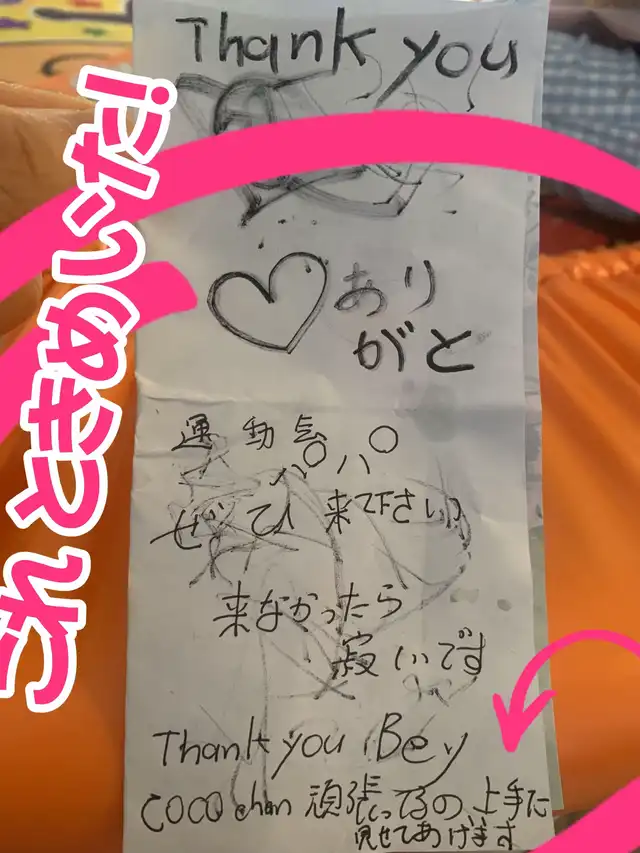 Thank you
♡あり
がと
運動会 パパ
ぜひ来て下さい
来なかったら
寂いです
Thank you Bey
COCO chan 頑張ってるの上手に
見せてあげます